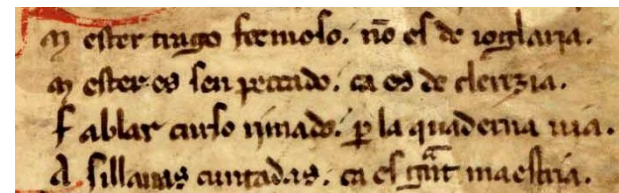 M ester trago fermoso. nõ es de ioglaria.
M ester es sen peccado. ca es de clerezia.
F ablar curso rimado. p̲ la quaderna uia.
A sillauas cuntadas. ca es gᵃ̃t maestria.